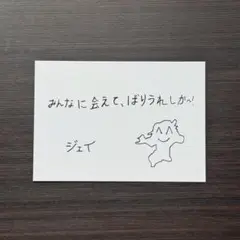 みんなに会えて、ばりうれしか〜!
ジェイ